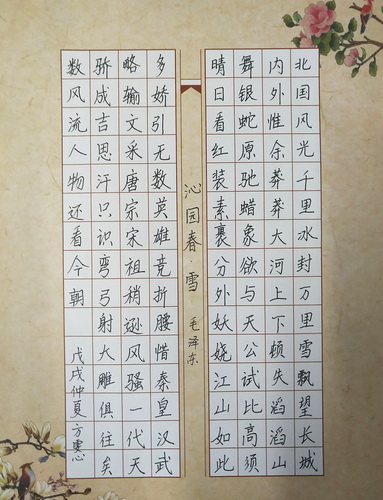 北国风光千里冰封万里雪飘望长城
内外惟余莽莽大河上下顿失滔滔山
舞银蛇原驰蜡象欲与天公试比高须
晴日看红装素裹分外妖娆江山如此
沁园春·雪 毛泽东
多娇引无数英雄竞折腰惜秦皇汉武
略输文采唐宗宋祖稍逊风骚一代天
骄成吉思汗只识弯弓射大雕俱往矣
数风流人物还看今朝
戊戌仲夏 方